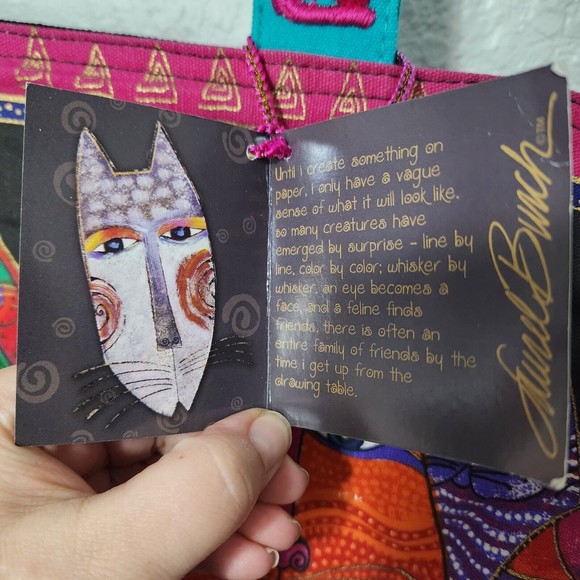 Until i create something on
paper, i only have a vague
sense of what it will look like.
so many creatures have
emerged by surprise - line by
line, color by color; whisker by
whisker, an eye becomes a
face, and a feline finds
friends. there is often an
entire family of friends by the
time i get up from the
drawing table.
Laurel Burch ©™